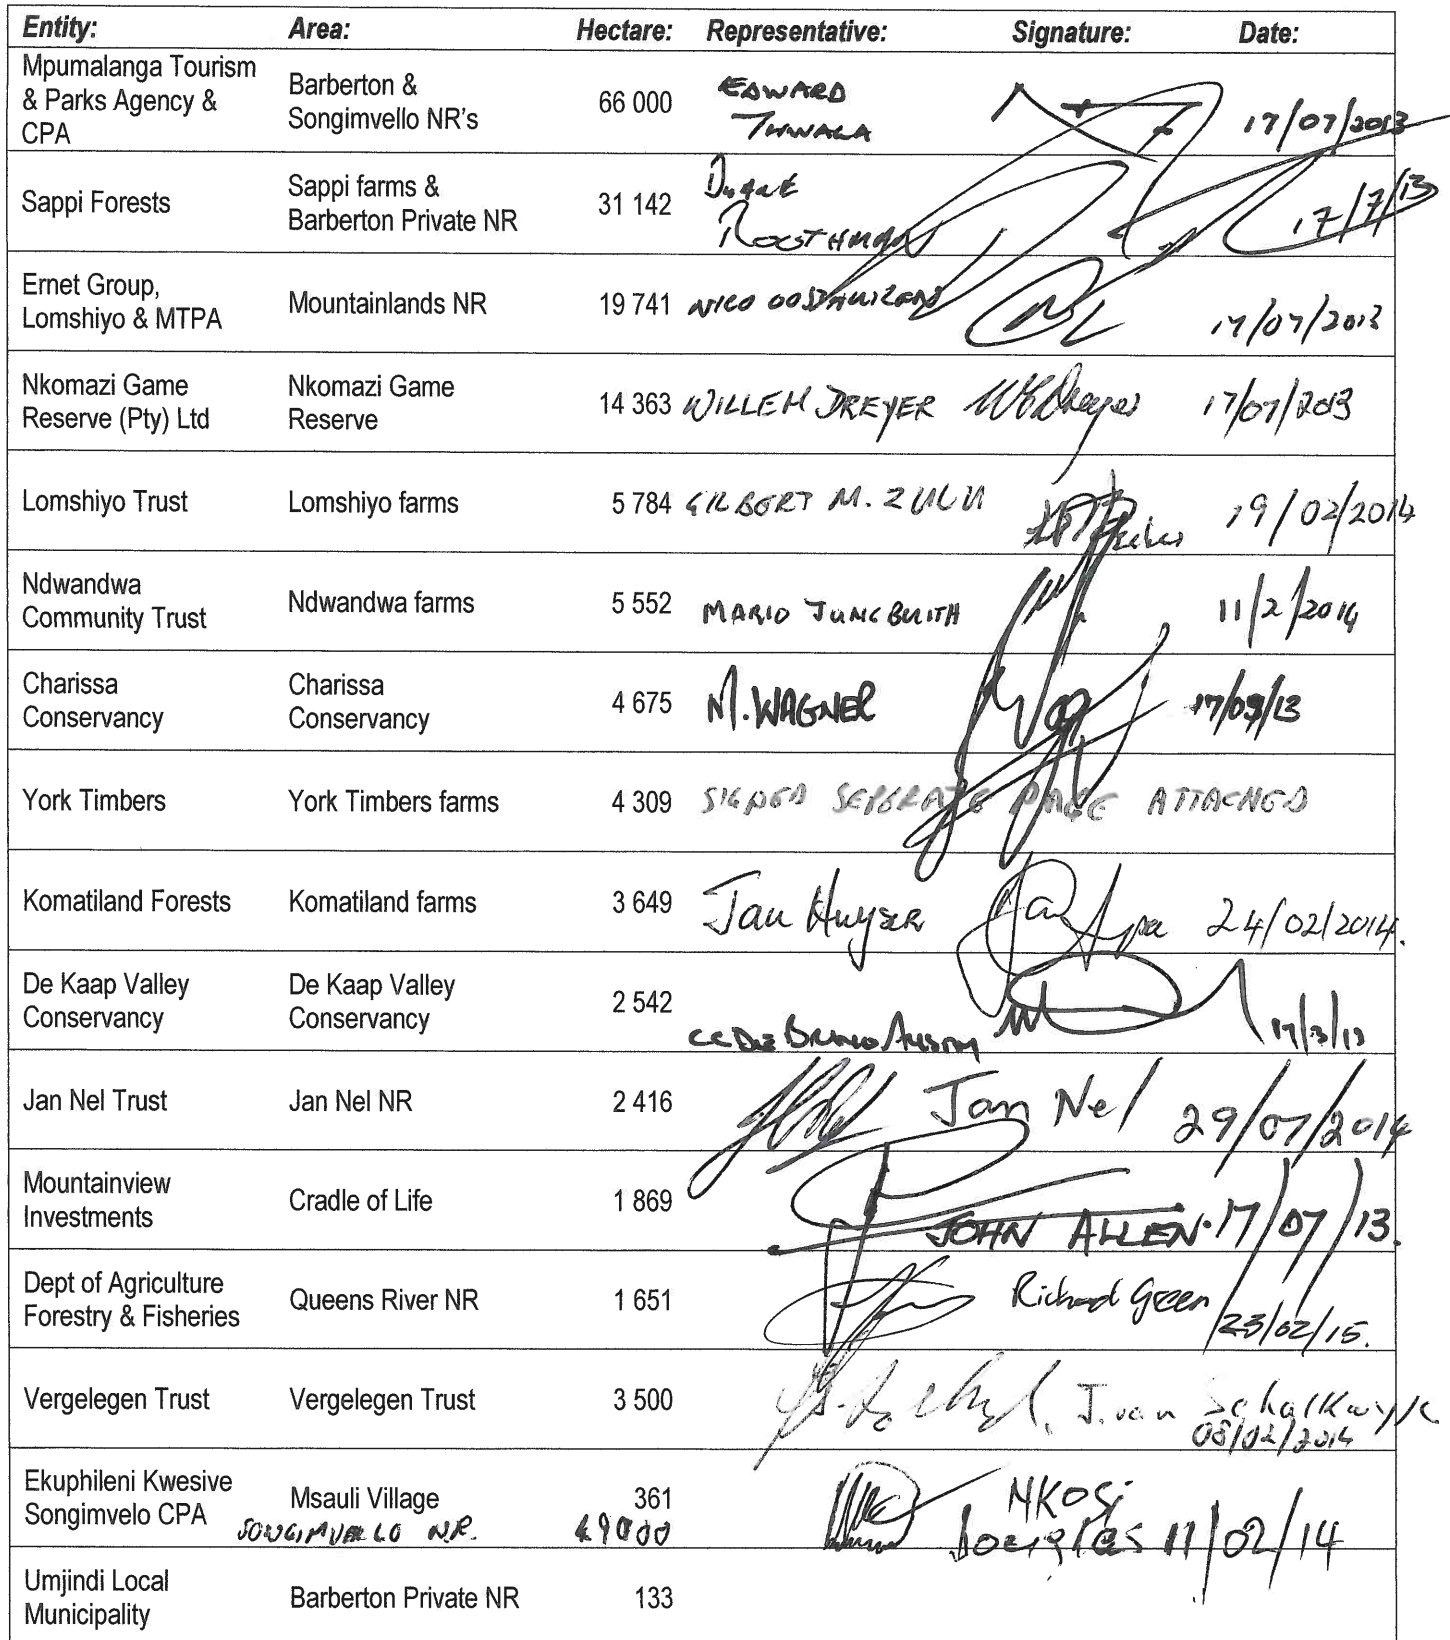 Entity: Area: Hectare: Representative: Signature: Date:
Mpumalanga Tourism
& Parks Agency &
CPA
Barberton &
Songimvello NR's
66 000
EDWARD
THWALA
17/07/2013
Sappi Forests
Sappi farms &
Barberton Private NR
31 142
17/7/13
Ernet Group,
Lomshiyo & MTPA
Mountainlands NR
19 741
NICO OOSTHUIZEN
17/07/2013
Nkomazi Game
Reserve (Pty) Ltd
Nkomazi Game
Reserve
14 363
WILLEM DREYER
17/07/2013
Lomshiyo Trust
Lomshiyo farms
5 784
GILBERT M. ZULU
19/02/2014
Ndwandwa
Community Trust
Ndwandwa farms
5 552
MARIO
11/2/2014
Charissa
Conservancy
Charissa
Conservancy
4 675
M. WAGNER
York Timbers
York Timbers farms
4 309
SIGNED SEPERATE PAGE ATTACHED
Komatiland Forests
Komatiland farms
3 649
Jan Huyser
24/02/2014.
De Kaap Valley
Conservancy
De Kaap Valley
Conservancy
2 542
Jan Nel Trust
Jan Nel NR
2 416
Jan Nel
29/07/2014
Mountainview
Investments
Cradle of Life
1 869
JOHN ALLEN. 17/07/13.
Dept of Agriculture
Forestry & Fisheries
Queens River NR
1 651
Richard Green
23/02/15.
Vergelegen Trust
Vergelegen Trust
3 500
J. van Schalkwyk
08/02/2014
Ekuphileni Kwesive
Songimvelo CPA
Msauli Village
SONGIMVELLO NR.
361
49000
NKOSi
Douglas 11/02/14
Umjindi Local
Municipality
Barberton Private NR
133